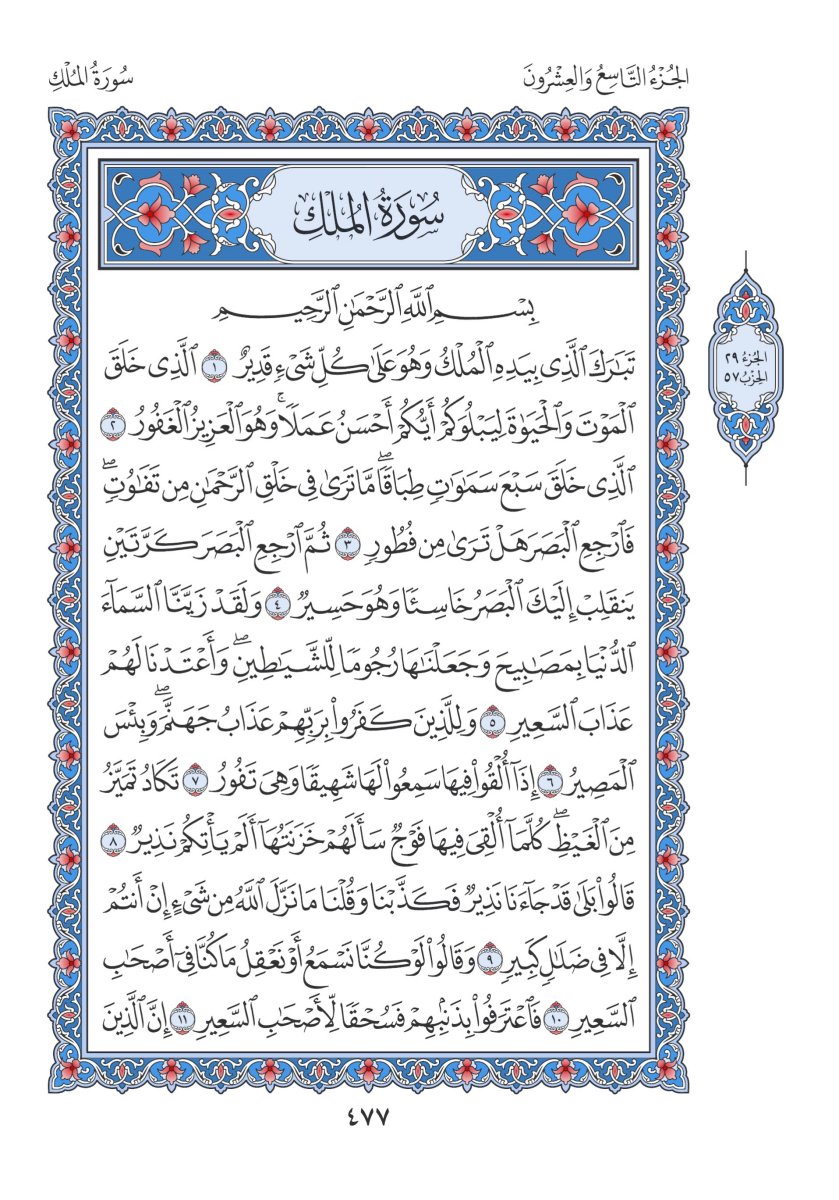 الجُزْءُ التَّاسِعُ وَالعِشْرُونَ
سُورَةُ المُلْكِ
سُورَةُ المُلْكِ
بِسْمِ ٱللَّهِ ٱلرَّحْمَٰنِ ٱلرَّحِيمِ
تَبَٰرَكَ ٱلَّذِى بِيَدِهِ ٱلْمُلْكُ وَهُوَ عَلَىٰ كُلِّ شَىْءٍ قَدِيرٌ ١ ٱلَّذِى خَلَقَ
ٱلْمَوْتَ وَٱلْحَيَوٰةَ لِيَبْلُوَكُمْ أَيُّكُمْ أَحْسَنُ عَمَلًاۚ وَهُوَ ٱلْعَزِيزُ ٱلْغَفُورُ ٢
ٱلَّذِى خَلَقَ سَبْعَ سَمَٰوَٰتٍ طِبَاقًاۖ مَّا تَرَىٰ فِى خَلْقِ ٱلرَّحْمَٰنِ مِن تَفَٰوُتٍۖ
فَٱرْجِعِ ٱلْبَصَرَ هَلْ تَرَىٰ مِن فُطُورٍ ٣ ثُمَّ ٱرْجِعِ ٱلْبَصَرَ كَرَّتَيْنِ
يَنقَلِبْ إِلَيْكَ ٱلْبَصَرُ خَاسِئًا وَهُوَ حَسِيرٌ ٤ وَلَقَدْ زَيَّنَّا ٱلسَّمَآءَ
ٱلدُّنْيَا بِمَصَٰبِيحَ وَجَعَلْنَٰهَا رُجُومًا لِّلشَّيَٰطِينِۖ وَأَعْتَدْنَا لَهُمْ
عَذَابَ ٱلسَّعِيرِ ٥ وَلِلَّذِينَ كَفَرُوا۟ بِرَبِّهِمْ عَذَابُ جَهَنَّمَۖ وَبِئْسَ
ٱلْمَصِيرُ ٦ إِذَآ أُلْقُوا۟ فِيهَا سَمِعُوا۟ لَهَا شَهِيقًا وَهِىَ تَفُورُ ٧ تَكَادُ تَمَيَّزُ
مِنَ ٱلْغَيْظِۖ كُلَّمَآ أُلْقِىَ فِيهَا فَوْجٌ سَأَلَهُمْ خَزَنَتُهَآ أَلَمْ يَأْتِكُمْ نَذِيرٌ ٨
قَالُوا۟ بَلَىٰ قَدْ جَآءَنَا نَذِيرٌ فَكَذَّبْنَا وَقُلْنَا مَا نَزَّلَ ٱللَّهُ مِن شَىْءٍ إِنْ أَنتُمْ
إِلَّا فِى ضَلَٰلٍ كَبِيرٍ ٩ وَقَالُوا۟ لَوْ كُنَّا نَسْمَعُ أَوْ نَعْقِلُ مَا كُنَّا فِىٓ أَصْحَٰبِ
ٱلسَّعِيرِ ١٠ فَٱعْتَرَفُوا۟ بِذَنۢبِهِمْ فَسُحْقًا لِّأَصْحَٰبِ ٱلسَّعِيرِ ١١ إِنَّ ٱلَّذِينَ
الجُزءُ ٢٩
الحِزْبُ ٥٧
٤٧٧